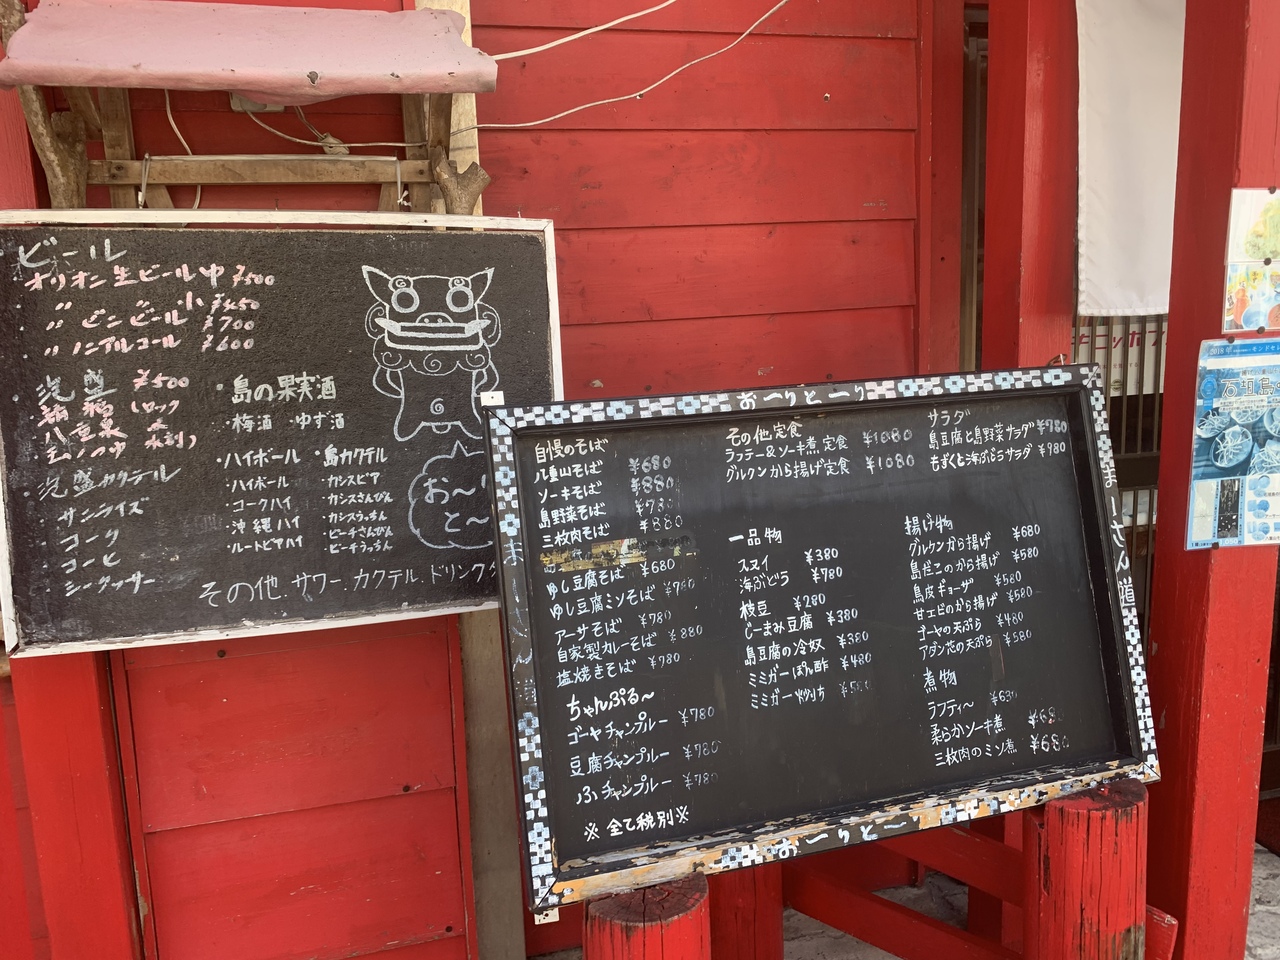 ビール
オリオン生ビール中 ¥500
〃 小 ¥450
〃 ビンビール ¥700
〃 ノンアルコール ¥600
泡盛 ¥500
八重泉
泡盛カクテル
・サンライズ
・コーク
・コーヒー
・シークヮーサー
・島の果実酒
・梅酒 ・ゆず酒
・ハイボール
・ハイボール
・コークハイ
・沖縄ハイ
・ルートビアハイ
・島カクテル
・カシスビア
・カシスさんぴん
・カシスうっちん
・ピーチさんぴん
・ピーチうっちん
お〜り
と〜
その他.サワー.カクテル.ドリンク
おーりとーり
自慢のそば
八重山そば ¥680
ソーキそば ¥880
島野菜そば ¥730
三枚肉そば ¥880
ゆし豆腐そば ¥680
ゆし豆腐ミソそば ¥780
アーサそば ¥780
自家製カレーそば ¥880
塩焼きそば ¥780
ちゃんぷる〜
ゴーヤチャンプルー ¥780
豆腐チャンプルー ¥780
ふチャンプルー ¥780
※全て税別※
その他定食
ラフテー&ソーキ煮定食 ¥1080
グルクンから揚げ定食 ¥1080
一品物
スヌイ ¥380
海ぶどう ¥780
枝豆 ¥280
じーまみ豆腐 ¥380
島豆腐の冷奴 ¥380
ミミガーぽん酢 ¥480
ミミガー炒め
サラダ
島豆腐と島野菜サラダ ¥980
もずくと海ぶどうサラダ ¥980
揚げ物
グルクンから揚げ ¥680
島だこのから揚げ ¥580
島皮ギョーザ ¥580
甘エビのから揚げ ¥580
ゴーヤの天ぷら ¥480
アダン花の天ぷら ¥580
煮物
ラフティ〜 ¥630
柔らかソーキ煮
三枚肉のミソ煮 ¥680
まーさん道
おーりとー
2018年
石垣島